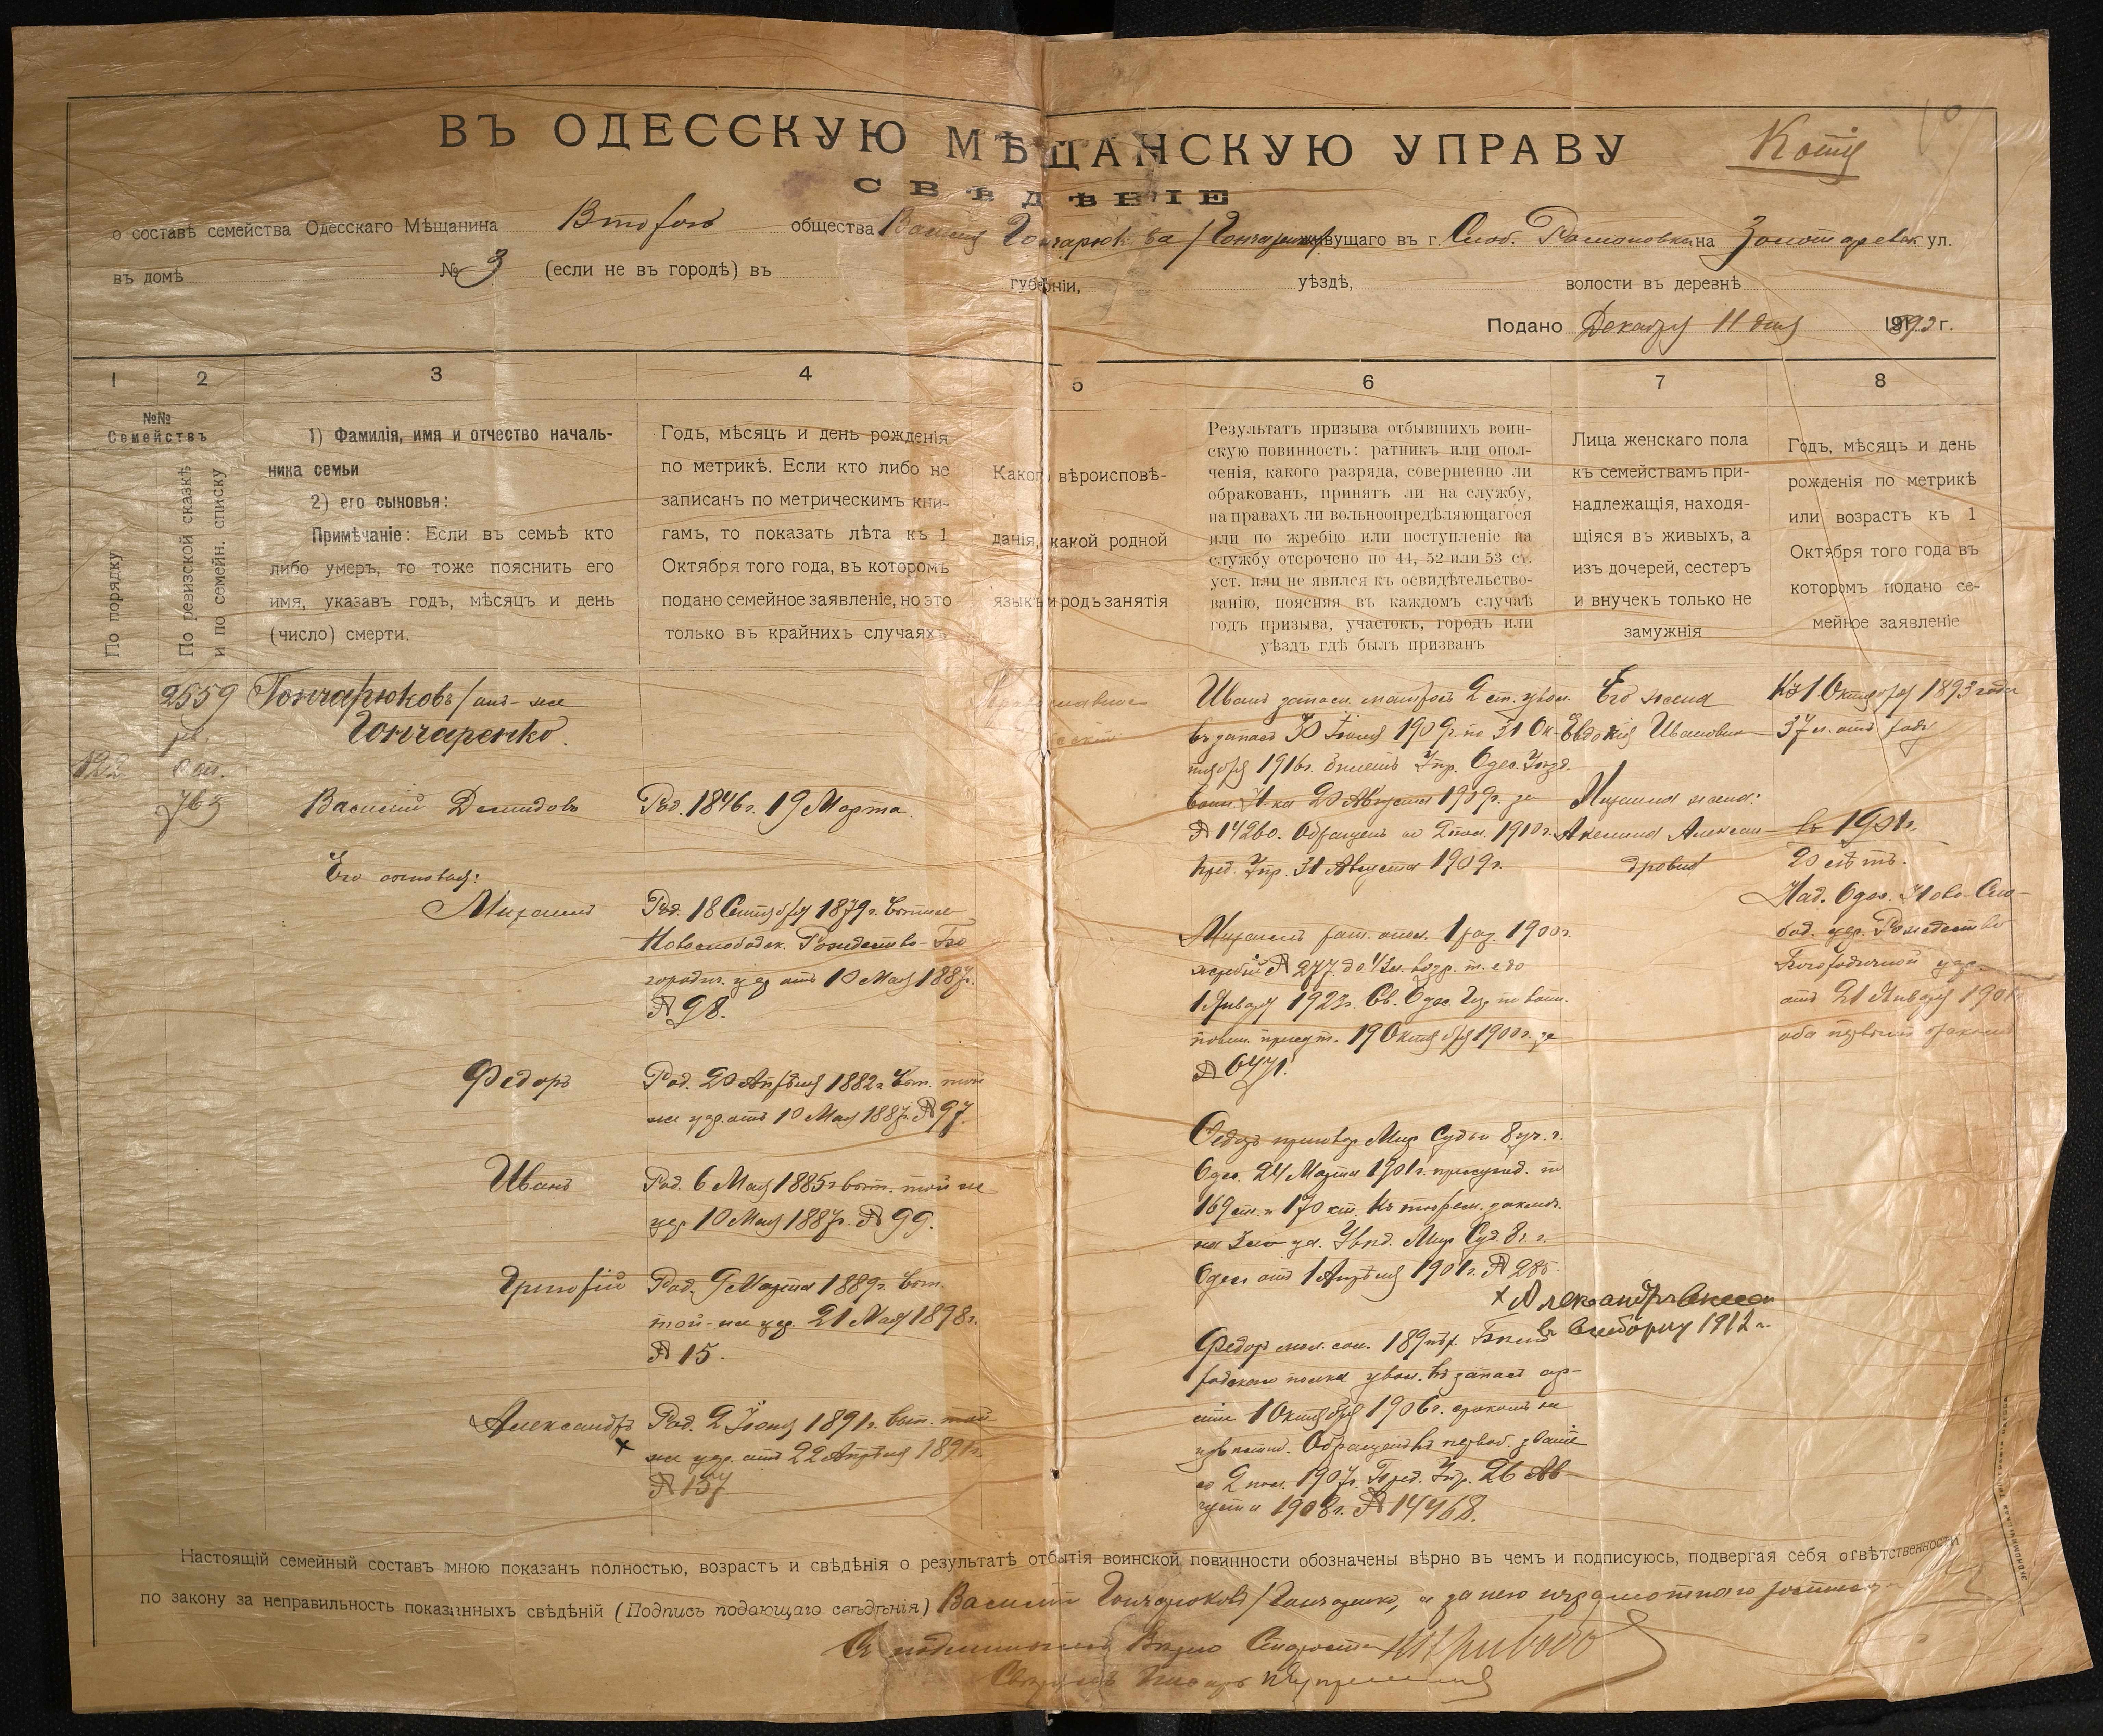 ВЪ ОДЕССКУЮ МѢЩАНСКУЮ УПРАВУ
Копія
СВѢДѢНІЕ
о составѣ семейства Одесскаго Мѣщанина общества Василія Гончарюкова / Гончаренко живущаго въ г. Слоб. Романовки на ул.
въ домѣ № 3 (если не въ городѣ) въ губерніи, уѣздѣ, волости въ деревнѣ
Подано Декабря 11 дня г.
1 2 3 4 5 6 7 8
№№
Семействъ
По порядку
По ревизской сказкѣ
и по семейн. списку
1) Фамилія, имя и отчество началь-
ника семьи
2) его сыновья:
Примѣчаніе: Если въ семьѣ кто
либо умеръ, то тоже пояснить его
имя, указавъ годъ, мѣсяцъ и день
(число) смерти.
Годъ, мѣсяцъ и день рожденія
по метрикѣ. Если кто либо не
записанъ по метрическимъ кни-
гамъ, то показать лѣта къ 1
Октября того года, въ которомъ
подано семейное заявленіе, но это
только въ крайнихъ случаяхъ
Какого вѣроисповѣ-
данія, какой родной
языкъ и родъ занятія
Результатъ призыва отбывшихъ воин-
скую повинность: ратникъ или опол-
ченія, какого разряда, совершенно ли
обракованъ, принятъ ли на службу,
на правахъ ли вольноопредѣляющагося
или по жребію или поступленіе на
службу отсрочено по 44, 52 или 53 ст.
уст. или не явился къ освидѣтельство-
ванію, поясняя въ каждомъ случаѣ
годъ призыва, участокъ, городъ или
уѣздъ гдѣ былъ призванъ
Лица женскаго пола
къ семействамъ при-
надлежащія, находя-
щіяся въ живыхъ, а
изъ дочерей, сестеръ
и внучекъ только не
замужнія
Годъ, мѣсяцъ и день
рожденія по метрикѣ
или возрастъ къ 1
Октября того года въ
которомъ подано се-
мейное заявленіе
2559
122
763
Гончарюковъ / онъ-же
Гончаренко.
Василій Демидовъ
Его сыновья:
Михаилъ
Федоръ
Иванъ
Григорій
Александръ
×
Род. 1846 г. 19 Марта.
Род. 18 Сентября 1879 г.
Новослободск. Рождество-Бо
городич. цер. отъ 10 Мая 1887 г.
№ 98.
Род. 20 Апрѣля 1882 г. вып. той
же цер. отъ 10 Мая 1887 г. № 97.
Род. 6 Мая 1885 г. вып. той же
цер. 10 Мая 1887 г. № 99.
Род. 9 Марта 1889 г. вып.
той-же цер. 21 Мая 1898 г.
№ 15.
Род. 2 Іюня 1891 г. вып. той
же цер. отъ 22 Апрѣля 1891 г.
№ 157
Православное
Иванъ запасн. матросъ 2 ст. увол.
въ запасъ 30 Іюня 1909 г. по 31 Ок-
тября 1916 г. билетъ Упр. Одес. Уѣзд.
Воин. Н-ка 20 Августа 1909 г. за
№ 14260. Обращенъ со 2 пол. 1910 г.
пред. Упр. 31 Августа 1909 г.
Михаилъ рат. опол. 1 раз. 1900 г.
жребій № 277. до 43 л. возр. т. е. до
1 Января 1923 г. Св. Одес. Гор. по воин.
повин. присут. 19 Октября 1900 г. за
№ 6471.
Федоръ приговор. Мир. Судьи 8 уч. г.
Одес. 24 Марта 1901 г. присужд. по
169 ст. и 170 ст. къ тюрем. заключ.
на Увѣд. Мир. Суд. 8 г.
Одессы отъ 1 Апрѣля 1901 г. № 285.
× Александръ
въ 1912 г.
Федоръ 189 пѣх.
полка увол. въ запасъ ар-
міи 1 Октября 1906 г. срокомъ не
извѣстно. Обращенъ въ первоб. званіе
со 2 пол. 1907 г. Пред. Упр. 26 Ав-
густа 1908 г. № 14468.
Его жена
Евдокія Иванова
Михаила жена:
Акелина Алексан-
дрова
Къ 1 Октября 1893 года
37 л. отъ роду
въ 1901 г.
20 лѣтъ.
Над. Одес. Ново-Сло-
бод. цер. Рождество
Богородичной цер.
отъ 21 Января 1901
оба первымъ бракомъ
Настоящій семейный составъ мною показанъ полностью, возрастъ и свѣдѣнія о результатѣ отбытія воинской повинности обозначены вѣрно въ чемъ и подписуюсь, подвергая себя отвѣтственности
по закону за неправильность показанныхъ свѣдѣній (Подпись подающаго свѣдѣнія) Василій Гончарюковъ / Гончаренко, а за него неграмотнаго
Съ подлиннымъ вѣрно Староста
Свѣрилъ Писарь